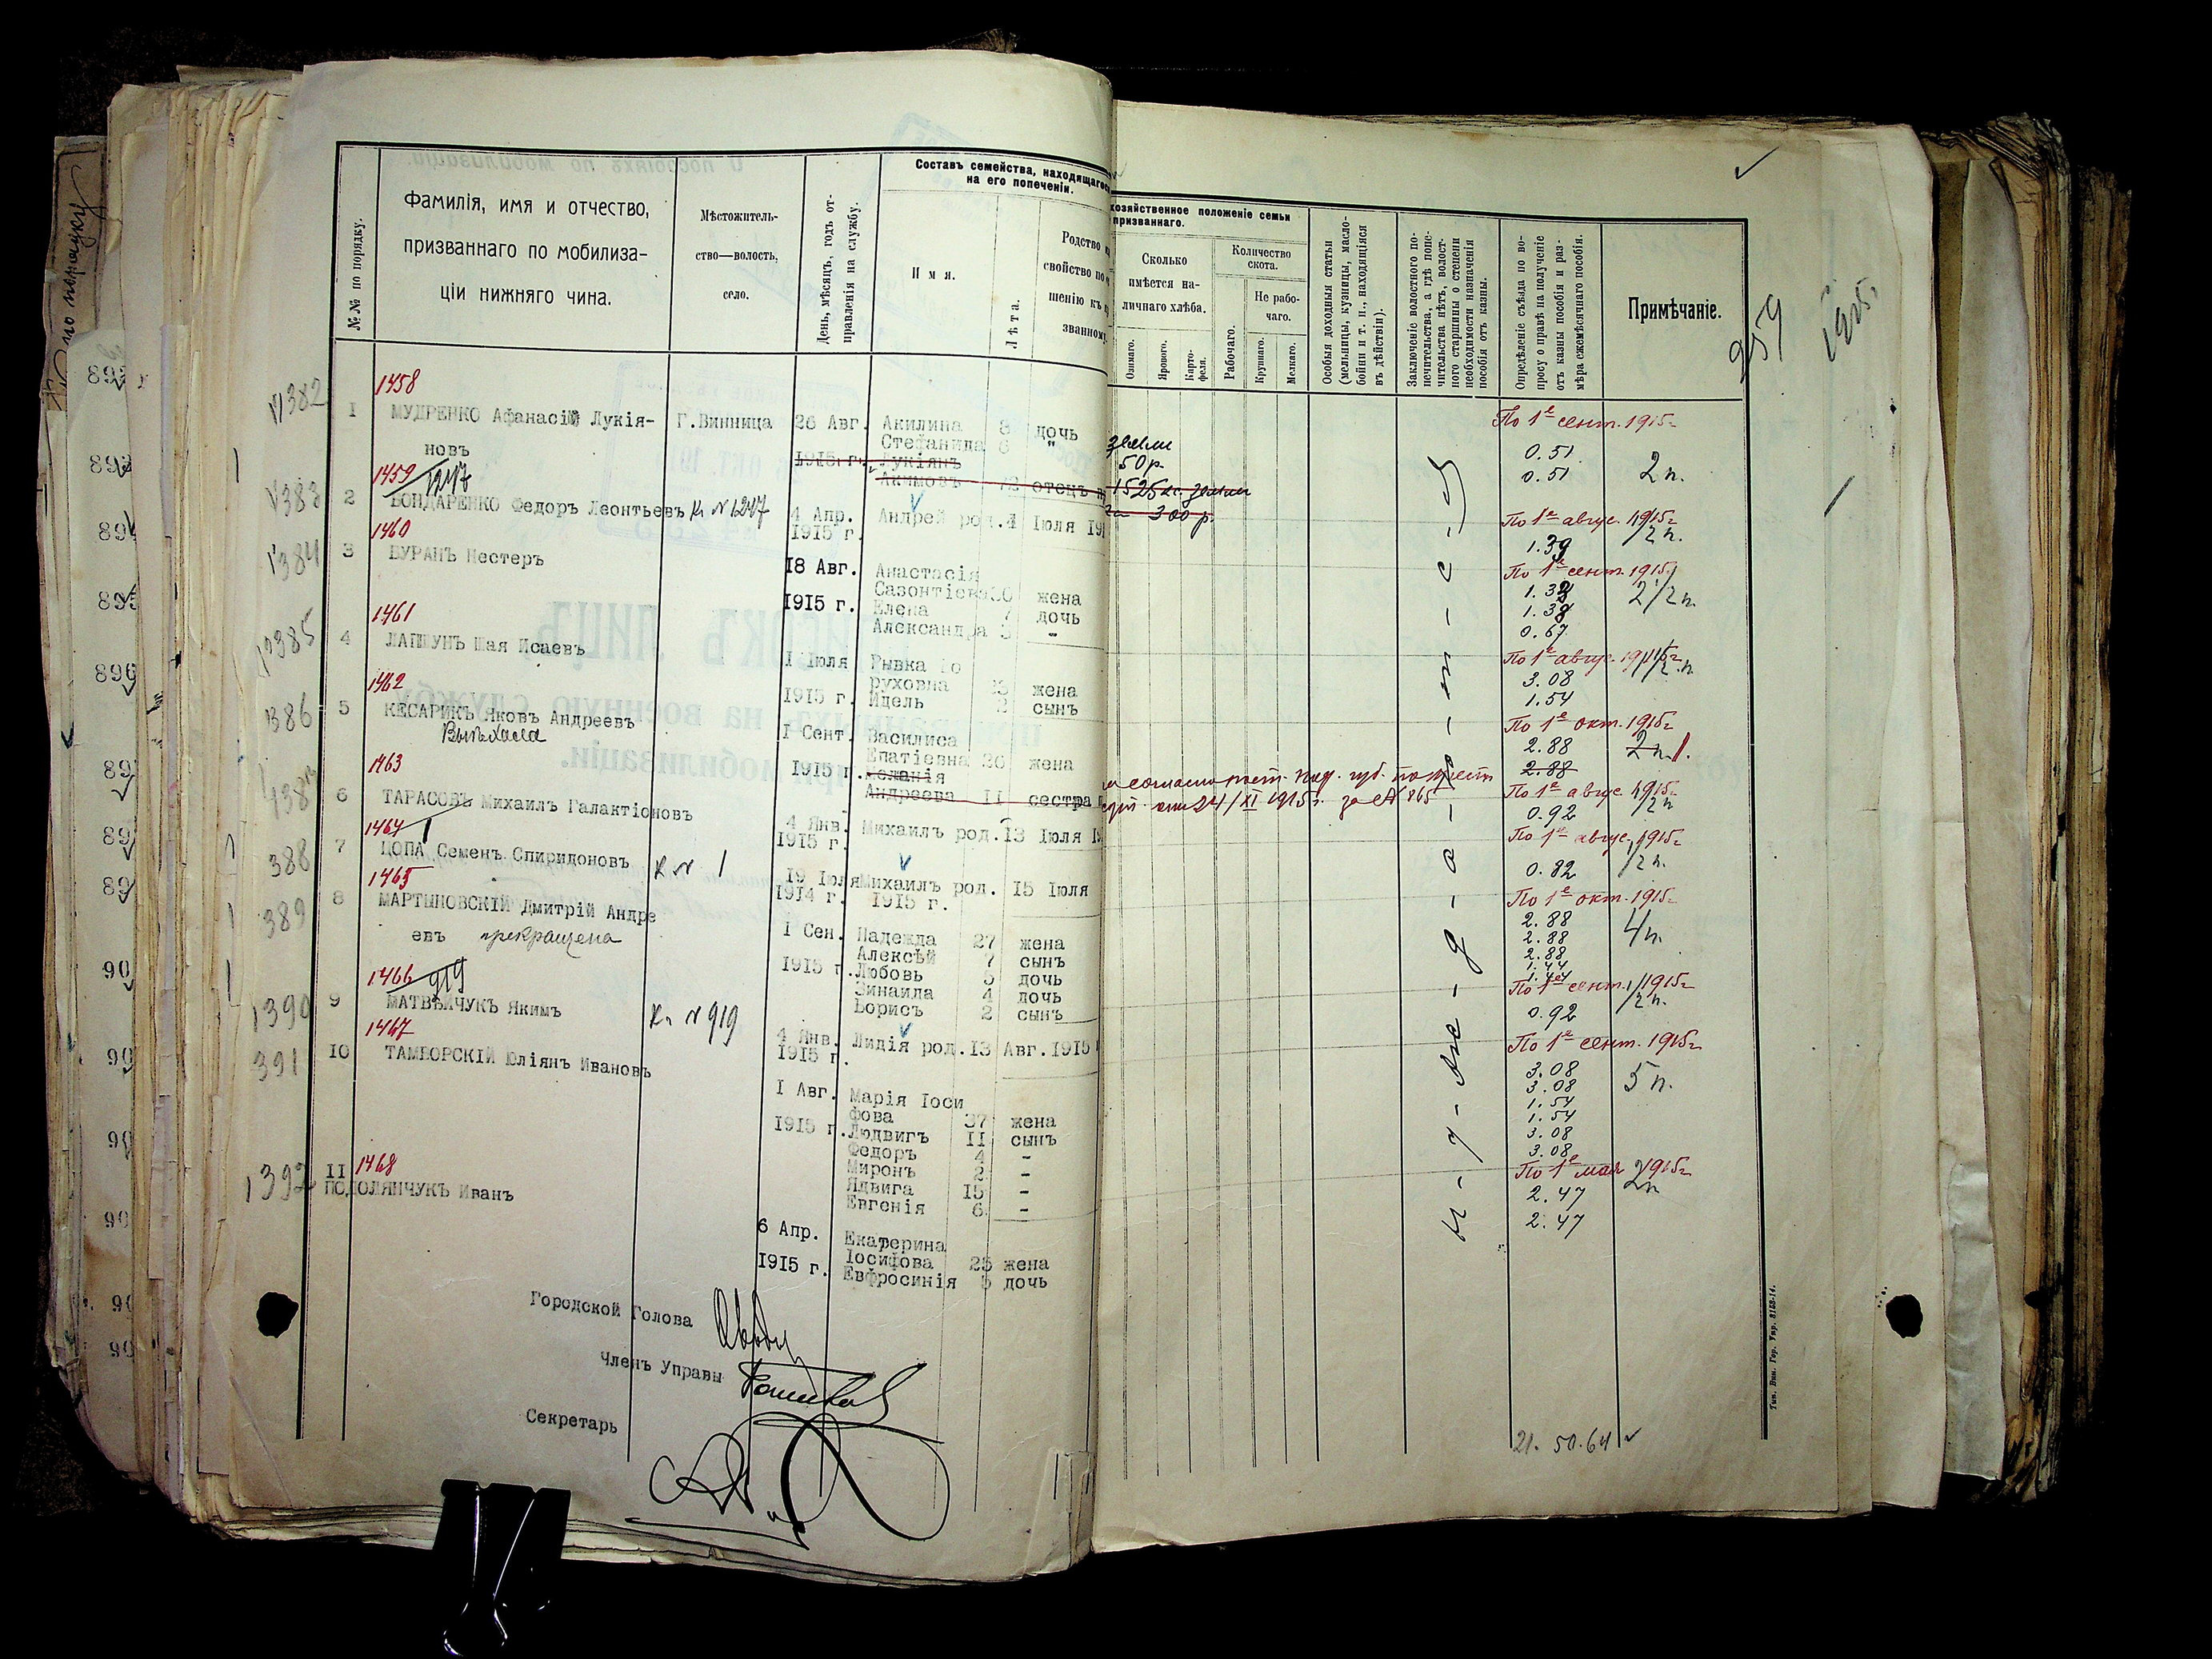 Составъ семейства, находящагося
на его попеченіи.
№№ по порядку.
Фамилія, имя и отчество,
призваннаго по мобилиза-
ціи нижняго чина.
Мѣстожитель-
ство—волость,
село.
День, мѣсяцъ, годъ от-
правленія на службу.
Имя.
Лѣта.
Родство
свойство по
шенію къ
званному
хозяйственное положеніе семьи
призваннаго.
Сколько
имѣется на-
личнаго хлѣба.
Количество
скота.
Не рабо-
чаго.
Озимаго.
Ярового.
Карто-
феля.
Рабочаго.
Крупнаго.
Мелкаго.
Особыя доходныя статьи
(мельницы, кузницы, масло-
бойни и т. п., находящіяся
въ дѣйствіи).
Заключеніе волостного по-
печительства, а гдѣ попе-
чительства нѣтъ, волост-
ного старшины о степени
необходимости назначенія
пособія отъ казны.
Опредѣленіе съѣзда по во-
просу о правѣ на полученіе
отъ казны пособія и раз-
мѣра ежемѣсячнаго пособія.
Примѣчаніе.
959
1458
1382
1 МУДРЕНКО Афанасій Лукія- Г.Винница 26 Авг. Акилина 8 дочь
новъ Стефанида 6 "
1915 г. Лукіянъ
Акимовъ 72 отецъ
земли
50 р.
1525 кс. земли
300 р.
По 1е сент. 1915г
0.51
0.51
2 п.
1459 1247
1383
2 БОНДАРЕНКО Федоръ Леонтьевъ К. № 1247 4 Апр. Андрей род. 4 Іюля
1915 г.
По 1е авгус. 1915г
1.39
1/2 п.
1460
1384
3 БУРАНЪ Нестеръ 18 Авг. Анастасія
Сазонтіева 30 жена
1915 г. Елена 7 дочь
Александра 3 -
По 1е сент. 1915г
1.38
1.38
0.67
2 1/2 п.
1461
1385
4 ЛАПШУНЪ Шая Исаевъ 1 Іюля Рывка Бо
руховна 23 жена
1915 г. Ицель 2 сынъ
По 1е авгус. 1915г
3.08
1.54
1462
1386
5 КЕСАРИКЪ Яковъ Андреевъ 1 Сент. Василиса
Выѣхала
Епатіевна 20 жена
1915 г. Меланія
Андреева 11 сестра
По 1е окт. 1915г
2.88
2.88
2 п. 1.
1463
6 ТАРАСОВЪ Михаилъ Галактіоновъ 4 Янв. Михаилъ род. 13 Іюля
1915 г.
По 1е авгус. 1915г
0.92
1/2 п
1464 1
388
7 ЦОПА Семенъ Спиридоновъ К № 1 19 Іюля Михаилъ род. 15 Іюля
1914 г. 1915 г.
По 1е авгус. 1915г
0.82
1/2 п.
1465
389
8 МАРТЫНОВСКІЙ Дмитрій Андре
евъ прекращена
1 Сен. Надежда 27 жена
Алексѣй 7 сынъ
1915 г. Любовь 5 дочь
Зинаида 4 дочь
Борисъ 2 сынъ
По 1е окт. 1915г
2.88
2.88
2.88
1.44
1.44
4 п.
1466 919
1390
9 МАТВѢЙЧУКЪ Якимъ К. № 919 4 Янв. Лидія род. 13 Авг. 1915
1915 г.
По 1е сент. 1915г
0.92
1/2 п.
1467
391
10 ТАМБОРСКІЙ Юліянъ Ивановъ
1 Авг. Марія Іоси
фова 37 жена
1915 г. Людвигъ 11 сынъ
Федоръ 4 -
Миронъ 2 -
Ядвига 15 -
Евгенія 6 -
По 1е сент. 1915г
3.08
3.08
1.54
1.54
3.08
3.08
5 п.
1468
1392
11
ПОДОЛЯНЧУКЪ Иванъ
6 Апр. Екатерина
Іосифова 25 жена
1915 г. Евфросинія 5 дочь
По 1е мая 1915г
2.47
2.47
2 п
Н-у-ж-д-а-ю-т-с-я
Городской Голова
Членъ Управы
Секретарь
21. 50.64
Тип. Вин. Гор. Упр. 8158-14.